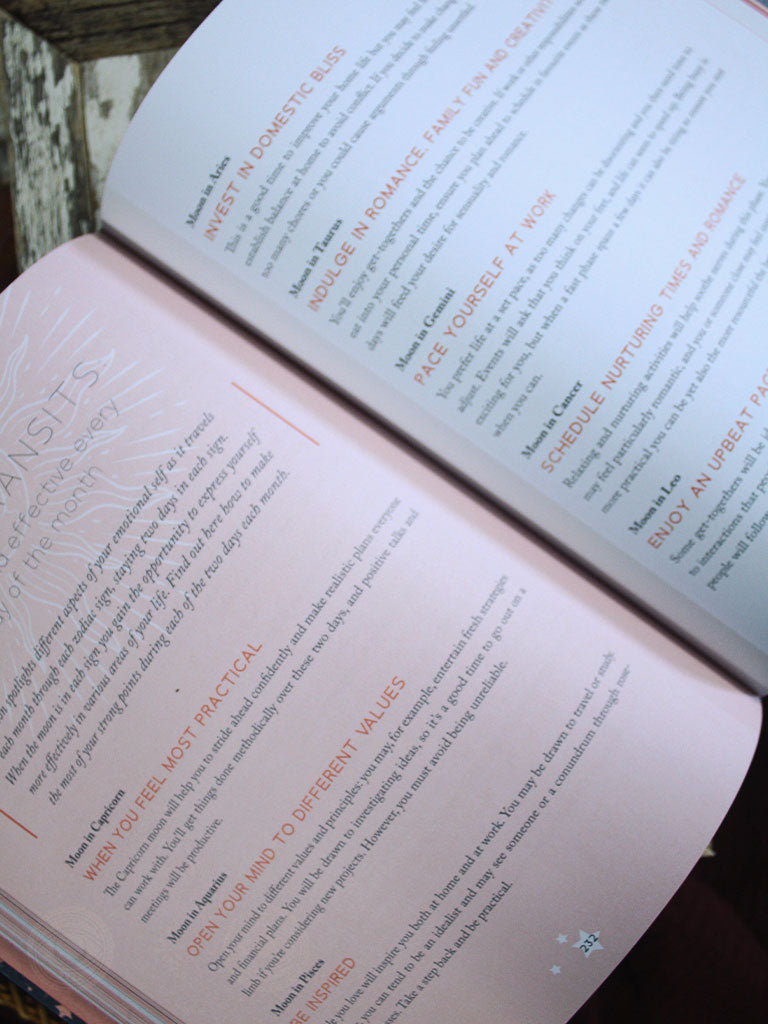 ANSITS
d effective every
y of the month
spotlights different aspects of your emotional self as it travels
each month through each zodiac sign, staying two days in each sign.
When the moon is in each sign you gain the opportunity to express yourself
more effectively in various areas of your life. Find out here how to make
the most of your strong points during each of the two days each month.
Moon in Capricorn
WHEN YOU FEEL MOST PRACTICAL
The Capricorn moon will help you to stride ahead confidently and make realistic plans everyone
can work with. You'll get things done methodically over these two days, and positive talks and
meetings will be productive.
Moon in Aquarius
OPEN YOUR MIND TO DIFFERENT VALUES
Open your mind to different values and principles: you may, for example, entertain fresh strategies
and financial plans. You will be drawn to investigating ideas, so it's a good time to go out on a
limb if you're considering new projects. However, you must avoid being unreliable.
Moon in Pisces
BE INSPIRED
le you love will inspire you both at home and at work. You may be drawn to travel or study
you can tend to be an idealist and may see someone or a conundrum through rose-
ses. Take a step back and be practical.
232
Moon in Aries
INVEST IN DOMESTIC BLISS
This is a good time to improve your home life but you may feel
establish balance at home to avoid conflict. If you decide to make
too many chores or you could cause arguments through feeling
Moon in Taurus
INDULGE IN ROMANCE, FAMILY FUN AND CREATIVIT
You'll enjoy get-togethers and the chance to be creative. If work or other responsibilities
eat into your personal time, ensure you plan ahead to schedule in fantastic events as these
days will feed your desire for sensuality and romance.
Moon in Gemini
PACE YOURSELF AT WORK
You prefer life at a set pace, as too many changes can be distracting and you then need time to
adjust. Events will ask that you think on your feet, and life can seem to speed up. Being busy is
exciting for you, but when a fast phase spans a few days it can also be tiring so ensure you rest
when you can.
Moon in Cancer
SCHEDULE NURTURING TIMES AND ROMANCE
Relaxing and nurturing activities will help soothe nerves during this phase.
may feel particularly romantic, and you or someone close may feel
more practical you can be yet also the more resourceful the
Moon in Leo
ENJOY AN UPBEAT PAC
Some get-togethers will be
to interactions that
people will follow